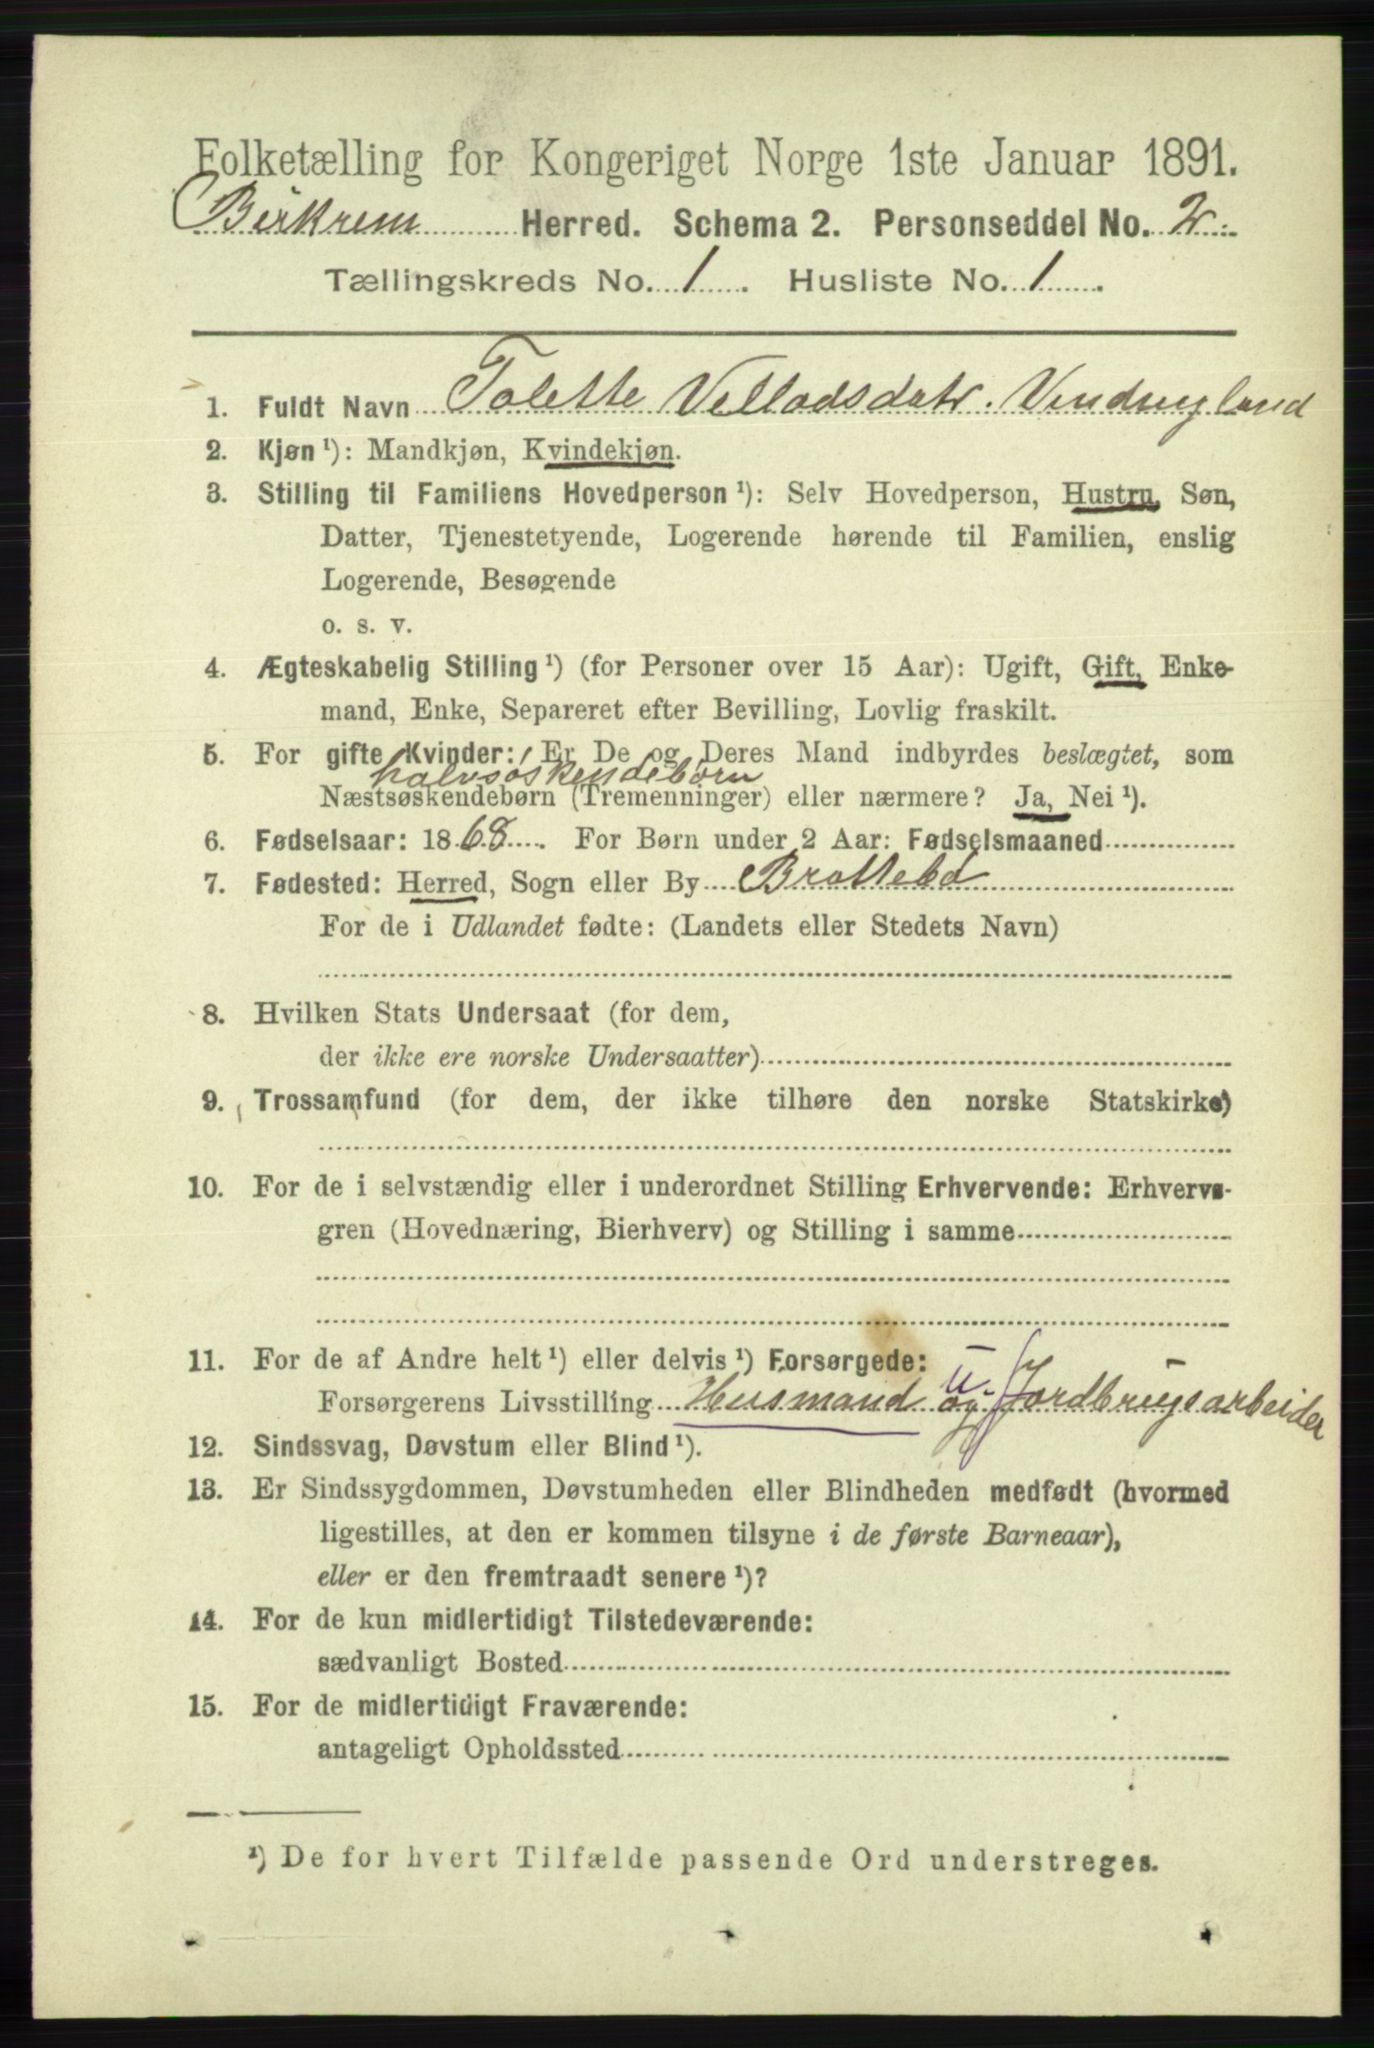 Folketælling for Kongeriget Norge 1ste Januar 1891.
Birkrem Herred. Schema 2. Personseddel No. 2
Tællingskreds No. 1. Husliste No. 1.
1. Fuldt Navn Tolette Velladsdatr. Vindingland
2. Kjøn ¹): Mandkjøn, Kvindekjøn.
3. Stilling til Familiens Hovedperson ¹): Selv Hovedperson, Hustru, Søn,
Datter, Tjenestetyende, Logerende hørende til Familien, enslig
Logerende, Besøgende
o. s. v.
4. Ægteskabelig Stilling ¹) (for Personer over 15 Aar): Ugift, Gift, Enke-
mand, Enke, Separeret efter Bevilling, Lovlig fraskilt.
5. For gifte Kvinder: Er De og Deres Mand indbyrdes beslægtet, som
halvsøskendebørn
Næstsøskendebørn (Tremenninger) eller nærmere? Ja, Nei ¹).
6. Fødselsaar: 1868. For Børn under 2 Aar: Fødselsmaaned
7. Fødested: Herred, Sogn eller By Brattebø
For de i Udlandet fødte: (Landets eller Stedets Navn)
8. Hvilken Stats Undersaat (for dem,
der ikke ere norske Undersaatter)
9. Trossamfund (for dem, der ikke tilhøre den norske Statskirke)
10. For de i selvstændig eller i underordnet Stilling Erhvervende: Erhvervs-
gren (Hovednæring, Bierhverv) og Stilling i samme
11. For de af Andre helt ¹) eller delvis ¹) Forsørgede:
Forsørgerens Livsstilling Husmand og Jordbrugsarbeider
12. Sindssvag, Døvstum eller Blind ¹).
13. Er Sindssygdommen, Døvstumheden eller Blindheden medfødt (hvormed
ligestilles, at den er kommen tilsyne i de første Barneaar),
eller er den fremtraadt senere ¹)?
14. For de kun midlertidigt Tilstedeværende:
sædvanligt Bosted
15. For de midlertidigt Fraværende:
antageligt Opholdssted
¹) De for hvert Tilfælde passende Ord understreges.